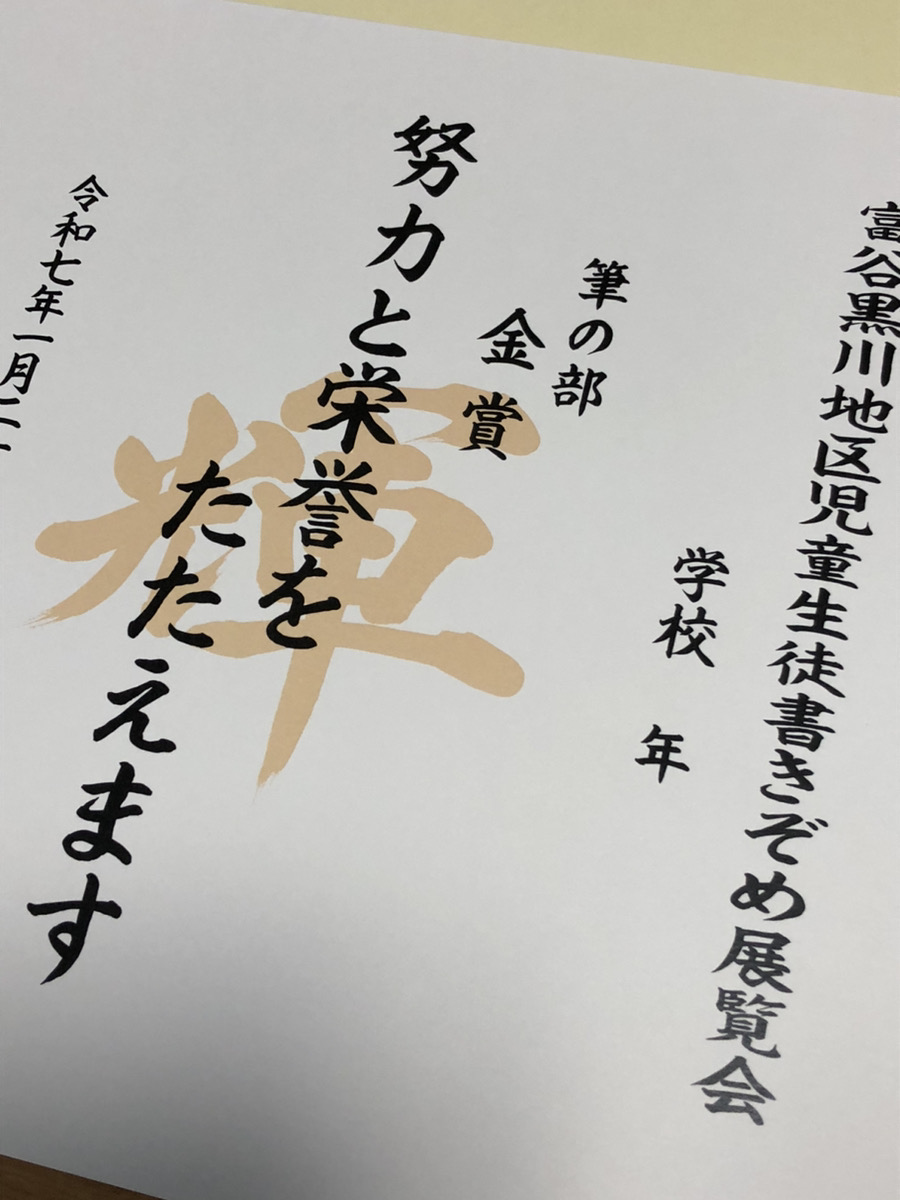 富谷黒川地区児童生徒書きぞめ展覧会
学校 年
筆の部
金賞
努力と栄誉を
たたえます
令和七年一月二
輝